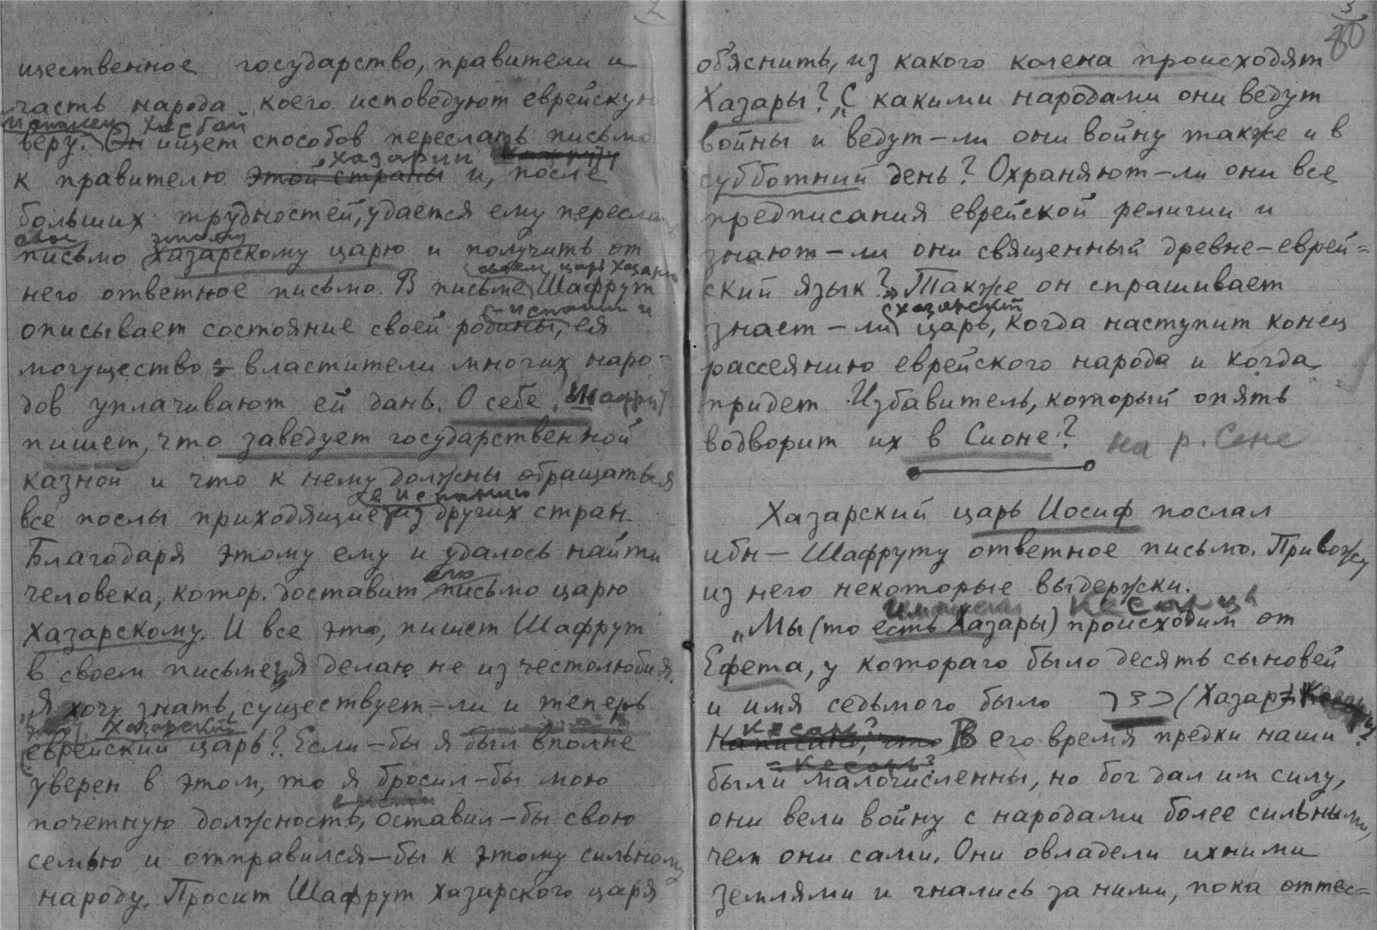 2
ищественное государство, правители и
часть народа коего исповедуют еврейскую
Хасбай
веру. Он ищет способов переслать письмо
Хазарии
к правителю этой страны и, после
больших трудностей, удается ему переслать
свое этому
письмо хазарскому царю и получить от
своем, царю Хазарии
него ответное письмо. В письме Шафрут
Испании и
описывает состояние своей родины, ея
могущество властители многих наро-
дов уплачивают ей дань. О себе, Шафрут
пишет, что заведует государственной
казной и что к нему должны обращаться
в Испанию
все послы приходящие из других стран.
Благодаря этому ему и удалось найти
его
человека, котор. доставит письмо царю
Хазарскому. И все это, пишет Шафрут
в своем письме, я делаю не из честолюбия.
„Я хочу знать, существует-ли и теперь
Хазарский
еврейский царь? Если-бы я был вполне
уверен в этом, то я бросил-бы мою
почетную должность, оставил-бы свою
семью и отправился-бы к этому сильному
народу. Просит Шафрут хазарского царя
3
80
об'яснить, из какого колена происходят
Хазары? С какими народами они ведут
войны и ведут-ли они войну также и в
субботний день? Охраняют-ли они все
предписания еврейской религии и
знают-ли они священный древне-еврей=
ский язык? Также он спрашивает
хазарский
знает-ли царь, когда наступит конец
рассеянию еврейского народа и когда
придет Избавитель, который опять
водворит их в Сионе? на р. Сене
Хазарский царь Иосиф послал
ибн-Шафруту ответное письмо. Привожу
из него некоторые выдержки.
Кесарцы
„Мы (то есть Хазары) происходим от
Ефета, у котораго было десять сыновей
и имя седьмого было כזר (Хазар=
Кесарь?
Написано, что В его время предки наши
= Кесарь?
были малочисленны, но бог дал им силу,
они вели войну с народами более сильными,
чем они сами. Они овладели ихними
землями и гнались за ними, пока оттес=